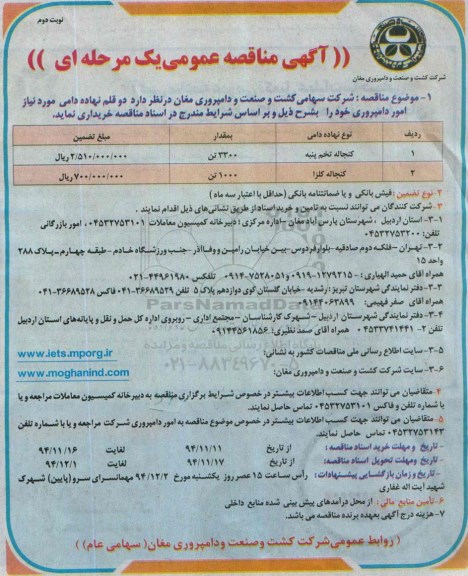 نوبت دوم
(( آگهی مناقصه عمومی یک مرحله ای ))
شرکت کشت و صنعت و دامپروری مغان
۱- موضوع مناقصه : شرکت سهامی کشت و صنعت و دامپروری مغان درنظر دارد دو قلم نهاده دامی مورد نیاز
امور دامپروری خود را بشرح ذیل و بر اساس شرایط مندرج در اسناد مناقصه خریداری نماید.
ردیف نوع نهاده دامی بمقدار مبلغ تضمین
۱ کنجاله تخم پنبه ۳۳۰۰ تن ۲/۵۱۰/۰۰۰/۰۰۰ ریال
۲ کنجاله کلزا ۱۰۰۰ تن ۷۰۰/۰۰۰/۰۰۰ ریال
۲- نوع تضمین : فیش بانکی و یا ضمانتنامه بانکی (حداقل با اعتبار سه ماه )
۳- شرکت کنندگان می توانند نسبت به تامین و خرید اسناد از طریق نشانی های ذیل اقدام نمایند .
۳-۱- استان اردبیل ، شهرستان پارس آباد مغان - اداره مرکزی : دبیرخانه کمیسیون معاملات ۰۴۵۳۲۷۵۳۱۰۱ ، امور بازرگانی
تلفن: ۰۴۵۳۲۷۵۳۲۰۰
۳-۲- تهران - فلکه دوم صادقیه - بلوار فردوس - بین خیابان رامین و وفاآذر - جنب ورزشگاه خادم - طبقه چهارم - پلاک ۲۸۸
واحد ۱۵
همراه آقای حمید الهیاری : ۰۹۱۹-۱۲۷۹۲۱۵ و ۷۵۲۸۰۵۱-۰۹۱۴ تلفکس ۴۴۹۶۱۹۸۰-۰۲۱
۳-۳- دفتر نمایندگی شهرستان تبریز: رشدیه - خیابان گلستان کوی دوازدهم پلاک ۵ تلفن ۳۶۶۸۹۵۲۹-۰۴۱ فاکس ۳۶۶۸۹۵۲۸-۰۴۱
همراه آقای صفر فهیمی: ۰۹۱۴۴۰۶۳۸۹۹
۳-۴- دفتر نمایندگی شهرستان اردبیل - شهرک کارشناسان - مجتمع اداری - روبروی اداره کل حمل و نقل و پایانه های استان اردبیل
تلفن ۲- ۰۴۵۳۳۷۴۱۴۴۱ همراه آقای صمد نظیری: ۰۹۱۴۴۵۶۱۸۵۶
۳-۵- سایت اطلاع رسانی ملی مناقصات کشور به نشانی: www.iets.mporg.ir
۳-۶- سایت شرکت کشت و صنعت و دامپروری مغان: www.moghanind.com
۴- متقاضیان می توانند جهت کسب اطلاعات بیشتر در خصوص شرایط برگزاری مناقصه به دبیرخانه کمیسیون معاملات مراجعه و یا
با شماره تلفن و فاکس ۰۴۵۳۲۷۵۳۱۰۱ تماس حاصل نمایند.
۵- متقاضیان می توانند جهت کسب اطلاعات بیشتر در خصوص موضوع مناقصه به امور دامپروری شرکت مراجعه و یا با شماره تلفن
۰۴۵۳۲۷۵۳۱۴۳ تماس حاصل نمایند.
- تاریخ و مهلت خرید اسناد مناقصه : از تاریخ ۹۴/۱۱/۱۱ لغایت ۹۴/۱۱/۱۶
- تاریخ ومهلت تحویل اسناد مناقصه : از تاریخ ۹۴/۱۱/۱۷ لغایت ۹۴/۱۲/۱
- تاریخ و زمان بازگشایی پیشنهادات : رأس ساعت ۱۵ عصر روز یکشنبه مورخ ۹۴/۱۲/۲ مهمانسرای سرو (پایین) شهرک
شهید آیت اله غفاری
۶- تأمین منابع مالی : از محل درآمدهای پیش بینی شده منابع داخلی
۷- هزینه درج آگهی بعهده برنده مناقصه می باشد.
( روابط عمومی شرکت کشت وصنعت ودامپروری مغان ( سهامی عام ) )
ParsNamadData
۰۲۱-۸۸۳۴۹۶۷۰